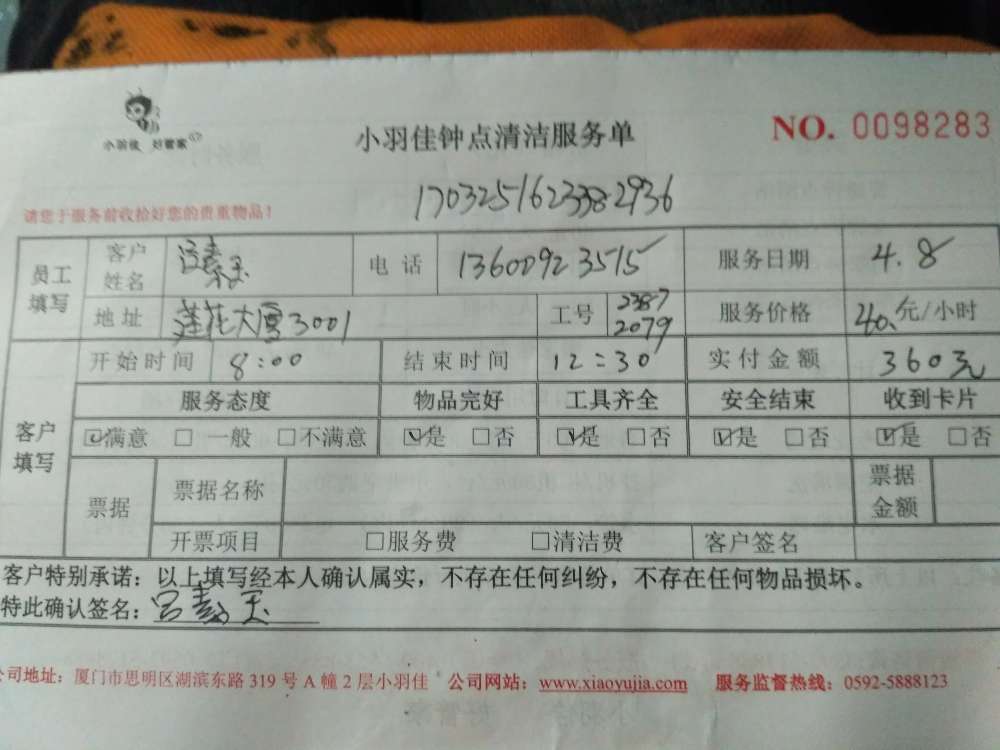 小羽佳 好管家
小羽佳钟点清洁服务单
NO. 0098283
1703251623382936
请您于服务前收拾好您的贵重物品！
员工填写 客户姓名 电话 13600923515 服务日期 4.8
地址 莲花大厦3001 工号 2387 2079 服务价格 40.元/小时
客户填写 开始时间 8:00 结束时间 12:30 实付金额 360元
服务态度 物品完好 工具齐全 安全结束 收到卡片
☑满意 □一般 □不满意 ☑是 □否 ☑是 □否 ☑是 □否 ☑是 □否
票据 票据名称 票据金额
开票项目 □服务费 □清洁费 客户签名
客户特别承诺：以上填写经本人确认属实，不存在任何纠纷，不存在任何物品损坏。
特此确认签名：
公司地址：厦门市思明区湖滨东路 319 号 A 幢 2 层小羽佳 公司网站：www.xiaoyujia.com 服务监督热线：0592-5888123